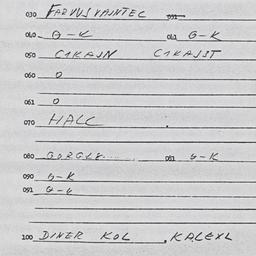 030 FARVUS VAINTEC 031
040 G-K 041 G-K
050 C1KAJN C1KAJST
060 0
061 0
070 HALC
080 081 G-K
090 G-K
091 G-G
100 DINER KOL, KALEXL